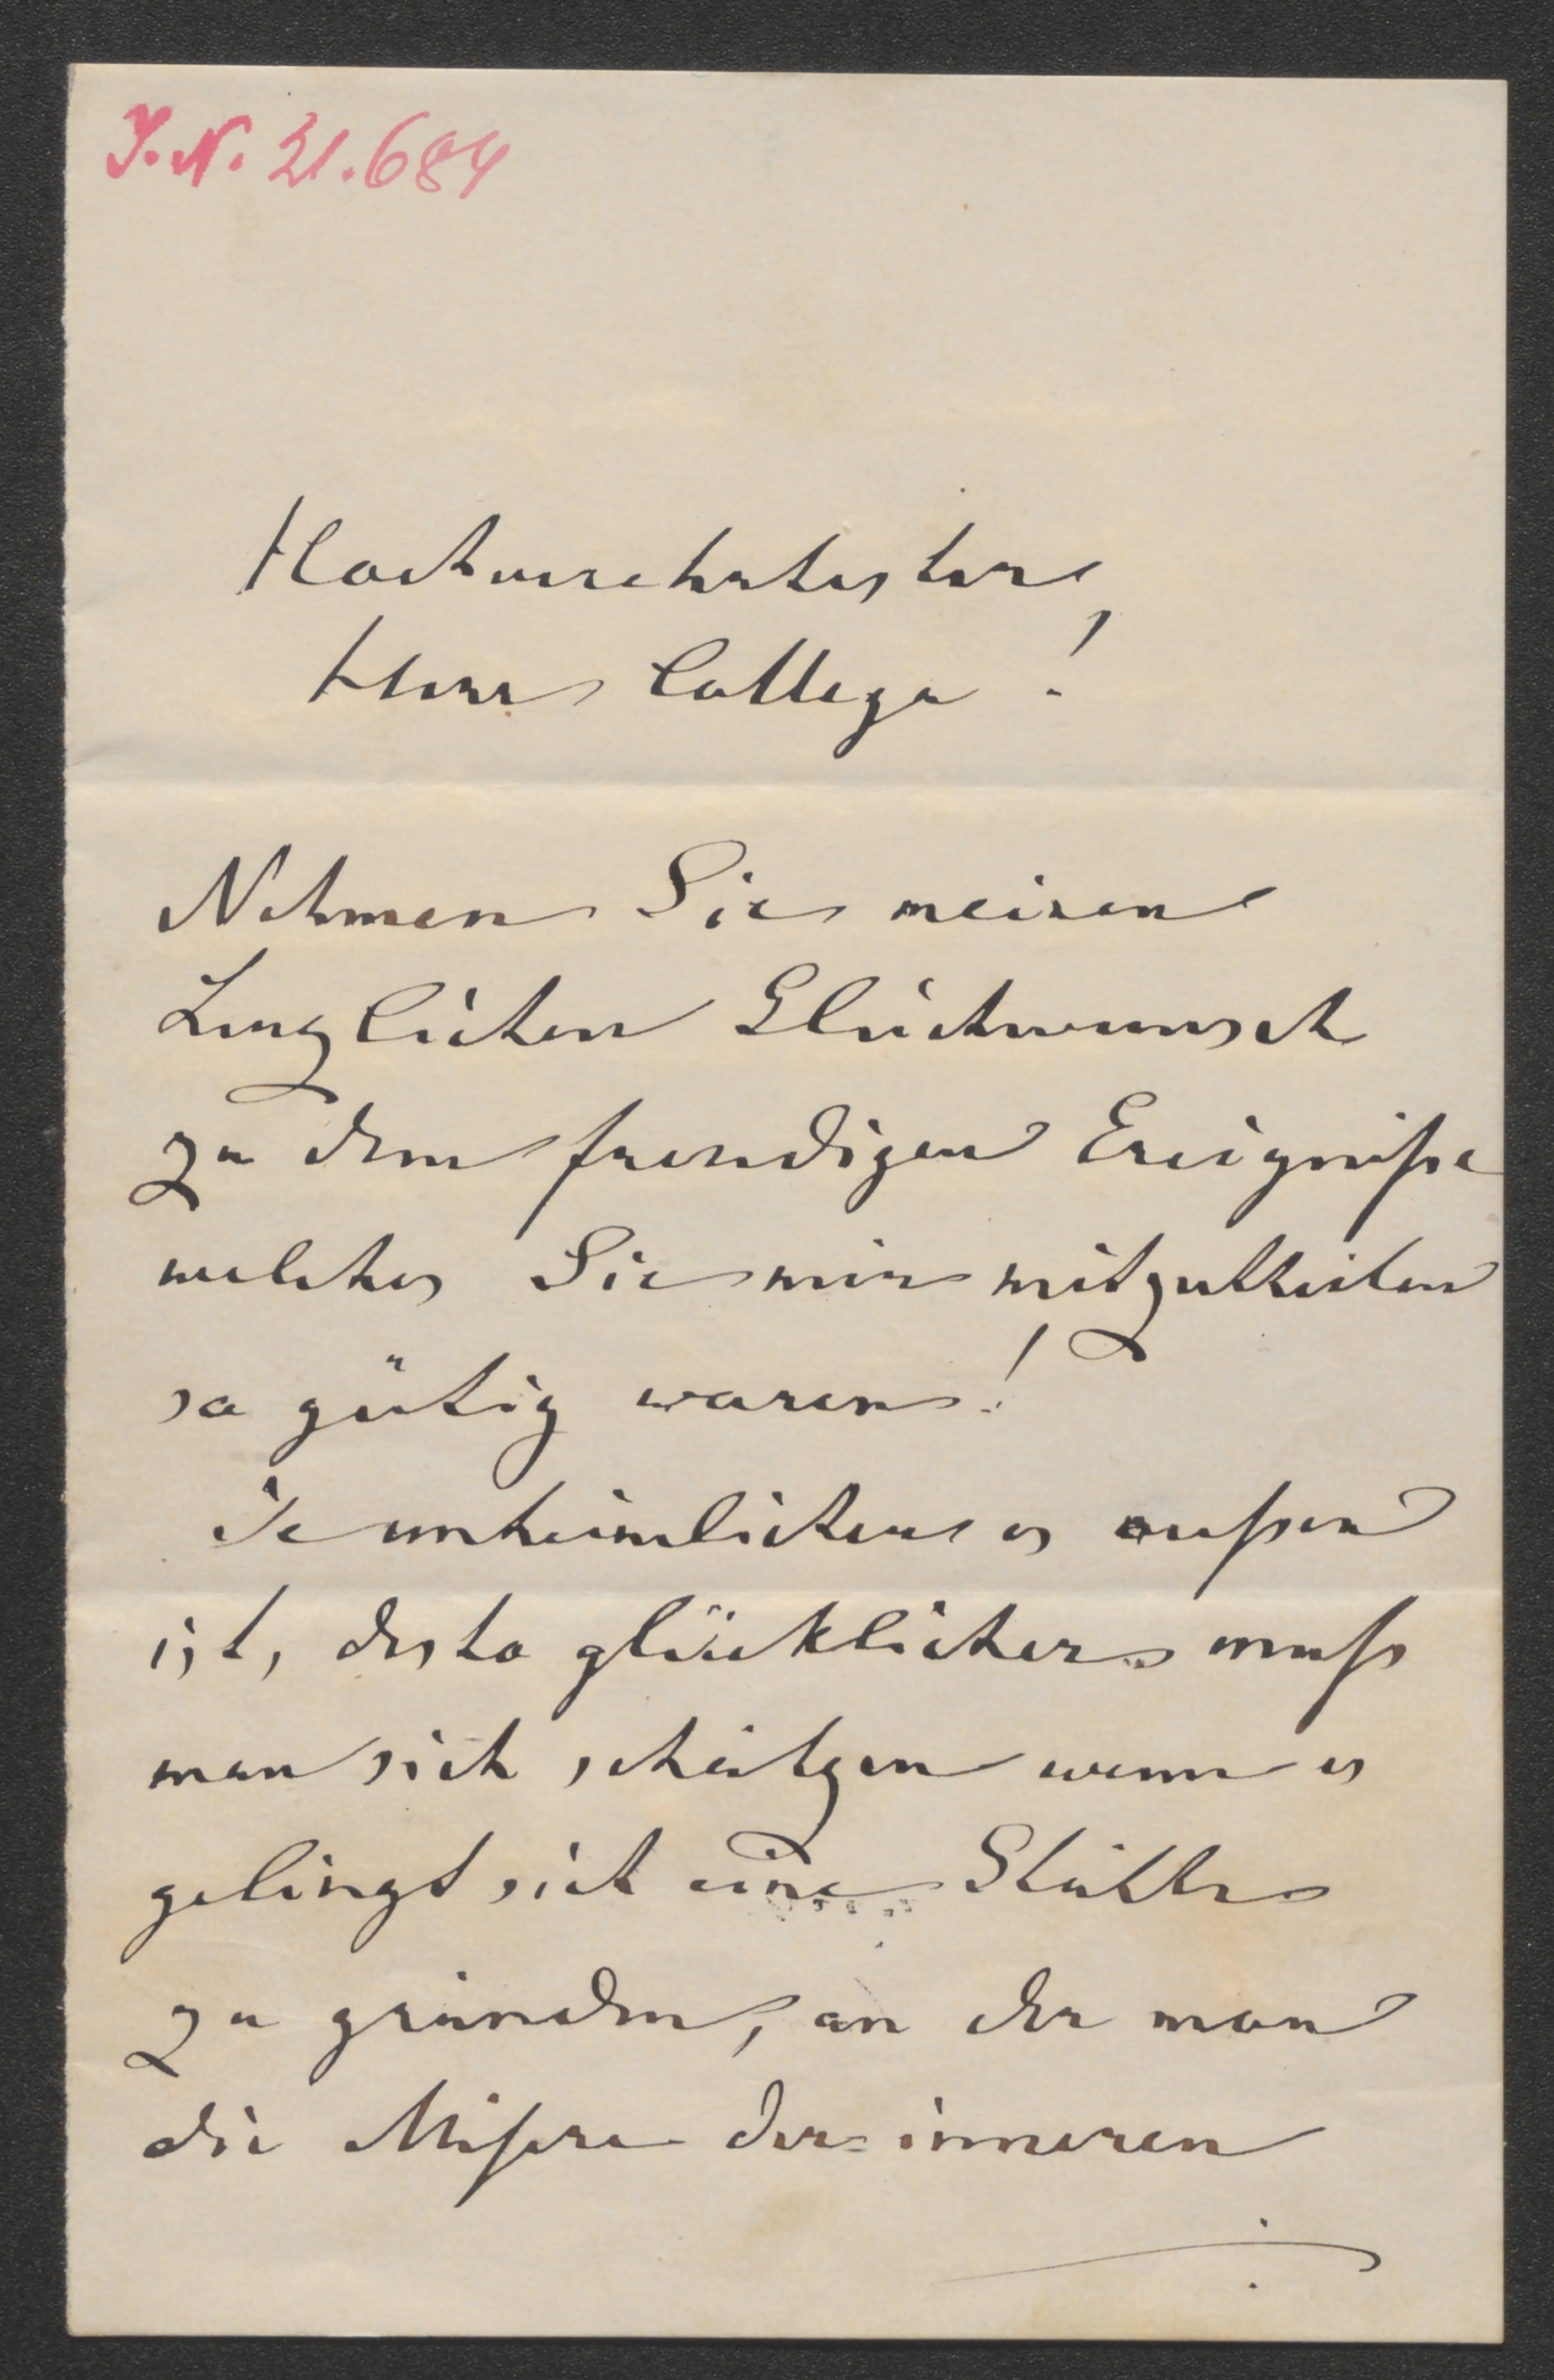 J.N. 21.684
Hochverehrtester
Herr College!
Nehmen Sie meinen
herzlichen Glückwunsch
zu dem freudigen Ereignisse
welches Sie mir mitzutheilen
so gütig waren!
Je unheimlicher es außen
ist, desto glücklicher muß
man sich schätzen wenn es
gelingt sich eine Stätte
zu gründen, an der man
die Misere der inneren